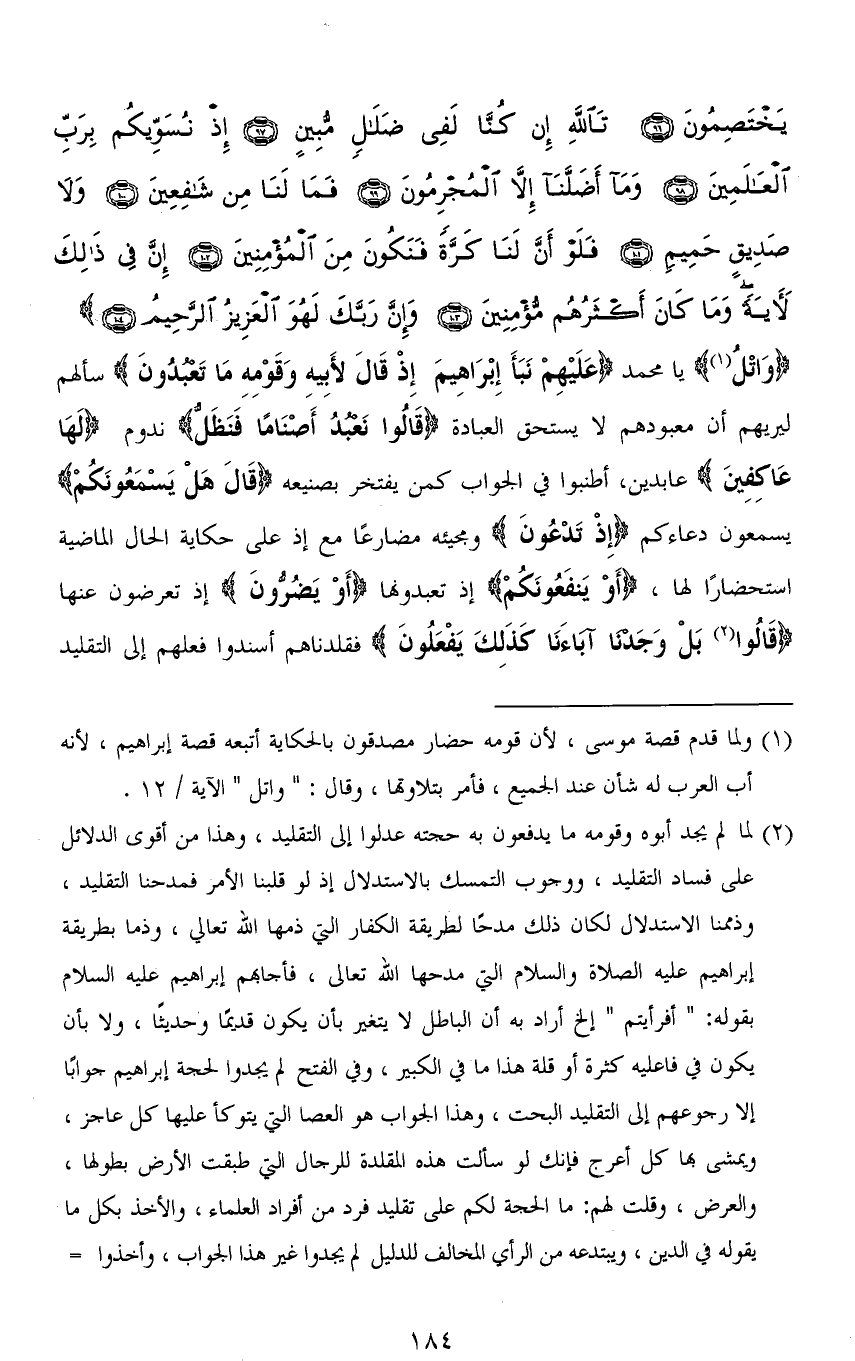 يَخْتَصِمُونَ ﴿٩٦﴾ تَٱللَّهِ إِن كُنَّا لَفِى ضَلَـٰلٍ مُّبِينٍ ﴿٩٧﴾ إِذْ نُسَوِّيكُم بِرَبِّ
ٱلْعَـٰلَمِينَ ﴿٩٨﴾ وَمَآ أَضَلَّنَآ إِلَّا ٱلْمُجْرِمُونَ ﴿٩٩﴾ فَمَا لَنَا مِن شَـٰفِعِينَ ﴿١٠٠﴾ وَلَا
صَدِيقٍ حَمِيمٍ ﴿١٠١﴾ فَلَوْ أَنَّ لَنَا كَرَّةً فَنَكُونَ مِنَ ٱلْمُؤْمِنِينَ ﴿١٠٢﴾ إِنَّ فِى ذَٰلِكَ
لَأَيَةً ۖ وَمَا كَانَ أَكْثَرُهُم مُّؤْمِنِينَ ﴿١٠٣﴾ وَإِنَّ رَبَّكَ لَهُوَ ٱلْعَزِيزُ ٱلرَّحِيمُ ﴿١٠٤﴾ ﴾
﴿وَاتْلُ(١)﴾ يا محمد ﴿عَلَيْهِمْ نَبَأَ إِبْرَاهِيمَ إِذْ قَالَ لأَبِيهِ وَقَوْمِهِ مَا تَعْبُدُونَ ﴾ سألهم
ليريهم أن معبودهم لا يستحق العبادة ﴿قَالُوا نَعْبُدُ أَصْنَامًا فَنَظَلُّ﴾ ندوم ﴿لَهَا
عَاكِفِينَ ﴾ عابدين، أطنبوا في الجواب كمن يفتخر بصنيعه ﴿قَالَ هَلْ يَسْمَعُونَكُمْ﴾
يسمعون دعاءكم ﴿إِذْ تَدْعُونَ ﴾ ومجيئه مضارعًا مع إذ على حكاية الحال الماضية
استحضارًا لها ، ﴿أَوْ يَنفَعُونَكُمْ﴾ إذ تعبدونها ﴿أَوْ يَضُرُّونَ ﴾ إذ تعرضون عنها
﴿قَالُوا(٢) بَلْ وَجَدْنَا آبَاءَنَا كَذَلِكَ يَفْعَلُونَ ﴾ فقلدناهم أسندوا فعلهم إلى التقليد
(١) ولما قدم قصة موسى ، لأن قومه حضار مصدقون بالحكاية أتبعه قصة إبراهيم ، لأنه
أب العرب له شأن عند الجميع ، فأمر بتلاوتها ، وقال : " واتل " الآية / ١٢ .
(٢) لما لم يجد أبوه وقومه ما يدفعون به حجته عدلوا إلى التقليد ، وهذا من أقوى الدلائل
على فساد التقليد ، ووجوب التمسك بالاستدلال إذ لو قلبنا الأمر فمدحنا التقليد ،
وذممنا الاستدلال لكان ذلك مدحًا لطريقة الكفار التي ذمها الله تعالي ، وذما بطريقة
إبراهيم عليه الصلاة والسلام التي مدحها الله تعالى ، فأجابهم إبراهيم عليه السلام
بقوله: " أفرأيتم " إلخ أراد به أن الباطل لا يتغير بأن يكون قديمًا وحديثًا ، ولا بأن
يكون في فاعليه كثرة أو قلة هذا ما في الكبير ، وفي الفتح لم يجدوا لحجة إبراهيم جوابًا
إلا رجوعهم إلى التقليد البحت ، وهذا الجواب هو العصا التي يتوكأ عليها كل عاجز ،
ويمشى بها كل أعرج فإنك لو سألت هذه المقلدة للرجال التي طبقت الأرض بطولها ،
والعرض ، وقلت لهم: ما الحجة لكم على تقليد فرد من أفراد العلماء ، والأخذ بكل ما
يقوله في الدين ، ويبتدعه من الرأي المخالف للدليل لم يجدوا غير هذا الجواب ، وأخذوا =
١٨٤